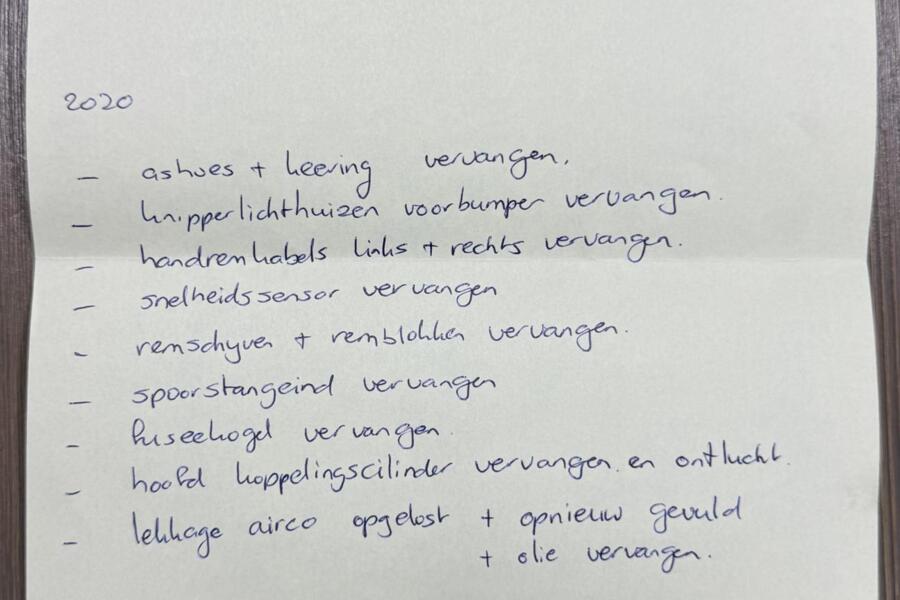 2020
- ashoes + keering vervangen.
- knipperlichthuizen voorbumper vervangen.
- handremkabels links + rechts vervangen.
- snelheidssensor vervangen
- remschyven + remblokken vervangen.
- spoorstangeind vervangen
- fuseekogel vervangen.
- hoofd koppelingscilinder vervangen en ontlucht.
- lekkage airco opgelost + opnieuw gevuld
+ olie vervangen.